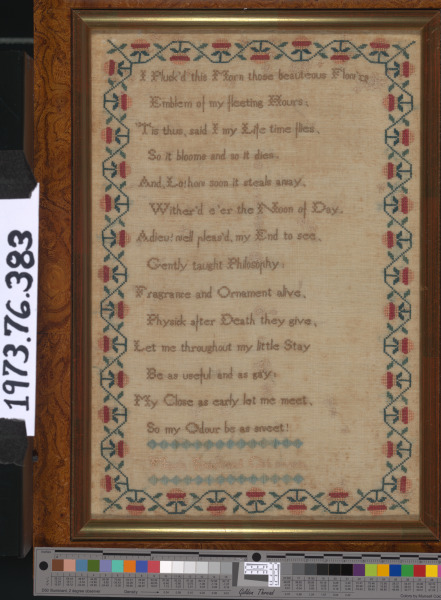 I Pluck'd this Morn those beauteous Flow'rs
Emblem of my fleeting Hours;
'Tis thus, said I my Life time flies,
So it blooms and so it dies.
And, Lo! how soon it steals away,
Wither'd e'er the Noon of Day.
Adieu! well pleas'd, my End to see,
Gently taught Philosophy:
Fragrance and Ornament alive,
Physick after Death they give,
Let me throughout my little Stay
Be as useful and as gay;
My Close as early let me meet,
So my Odour be as sweet!
1973.76.383
Golden Thread